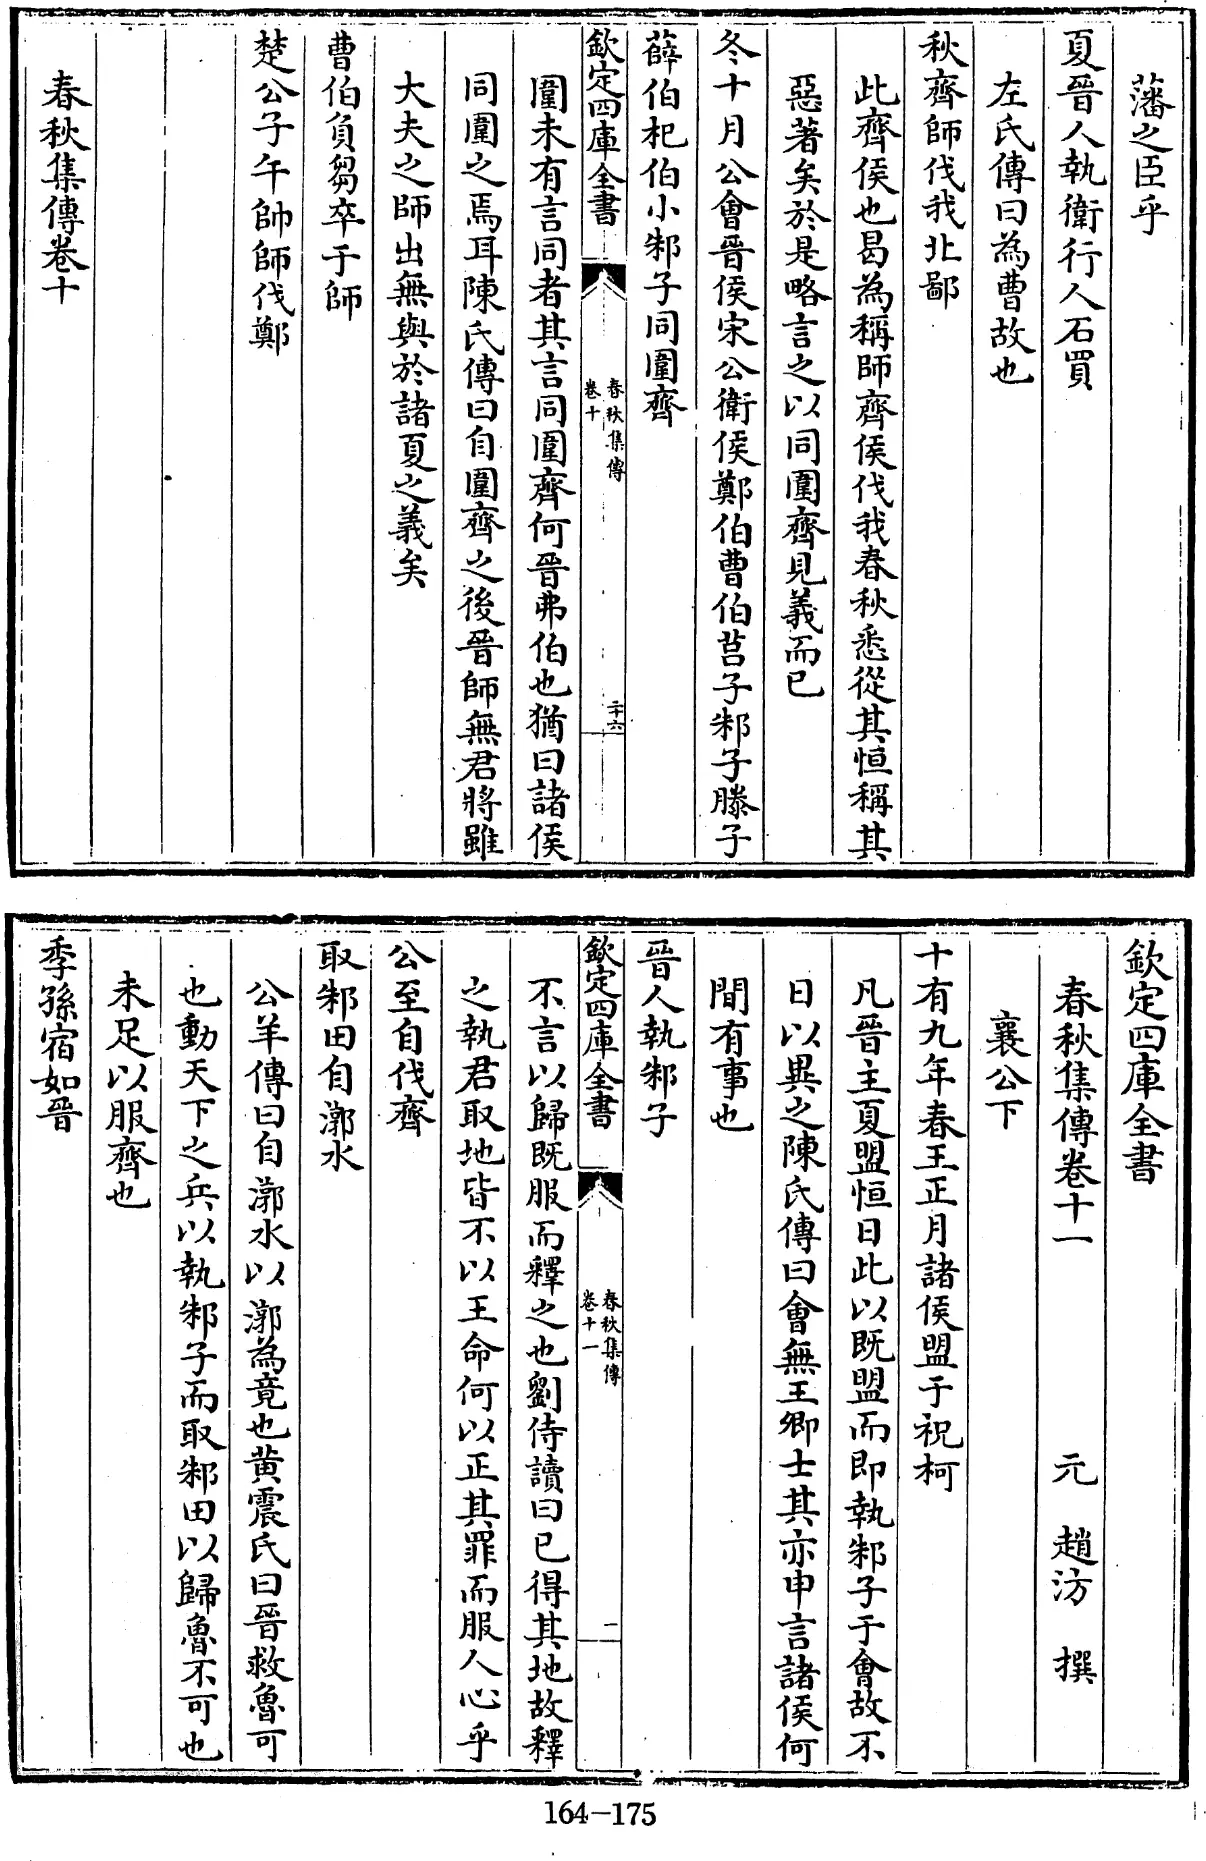 藩之臣乎
夏晉人執衛行人石買
左氏傳曰為曹故也
秋齊師伐我北鄙
此齊侯也曷為稱師齊侯伐我春秋悉從其恒稱其
惡著矣於是略言之以同圍齊見義而已
冬十月公會晉侯宋公衛侯鄭伯曹伯莒子邾子滕子
薛伯杞伯小邾子同圍齊
欽定四庫全書
春秋集傳
卷十
二十六
圍未有言同者其言同圍齊何晉弗伯也猶曰諸侯
同圍之焉耳陳氏傳曰自圍齊之後晉師無君將雖
大夫之師出無與於諸夏之義矣
曹伯負芻卒于師
楚公子午帥師伐鄭
春秋集傳卷十
欽定四庫全書
春秋集傳卷十一
元 趙汸 撰
襄公下
十有九年春王正月諸侯盟于祝柯
凡晉主夏盟恒日此以既盟而即執邾子于會故不
日以異之陳氏傳曰會無王卿士其亦申言諸侯何
間有事也
晉人執邾子
欽定四庫全書
春秋集傳
卷十一
一
不言以歸既服而釋之也劉侍讀曰已得其地故釋
之執君取地皆不以王命何以正其罪而服人心乎
公至自伐齊
取邾田自漷水
公羊傳曰自漷水以漷為竟也黄震氏曰晉救魯可
也動天下之兵以執邾子而取邾田以歸魯不可也
未足以服齊也
季孫宿如晉
164-175